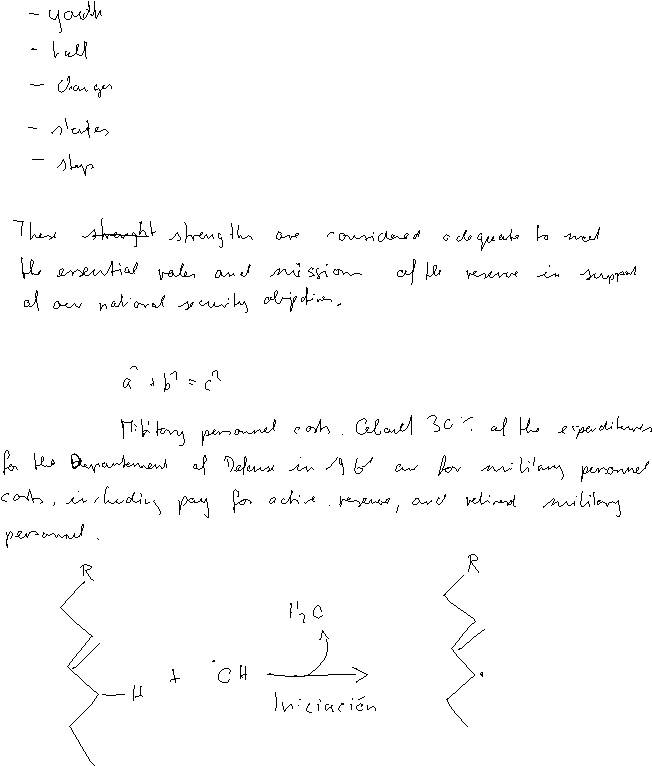 - youth
- ball
- changes
- states
- stop
These strenght strengths are considered adequate to meet
the essential roles and missions of the reserve in support
of our national security objectives.
a² + b² = c²
Military personnel costs. About 30% of the expenditures
for the Departement of Defense in are for military personnel
costs, including pay for active, reserve, and retired military
personnel.
R
R
H₂O
+ ·OH
H
Iniciación